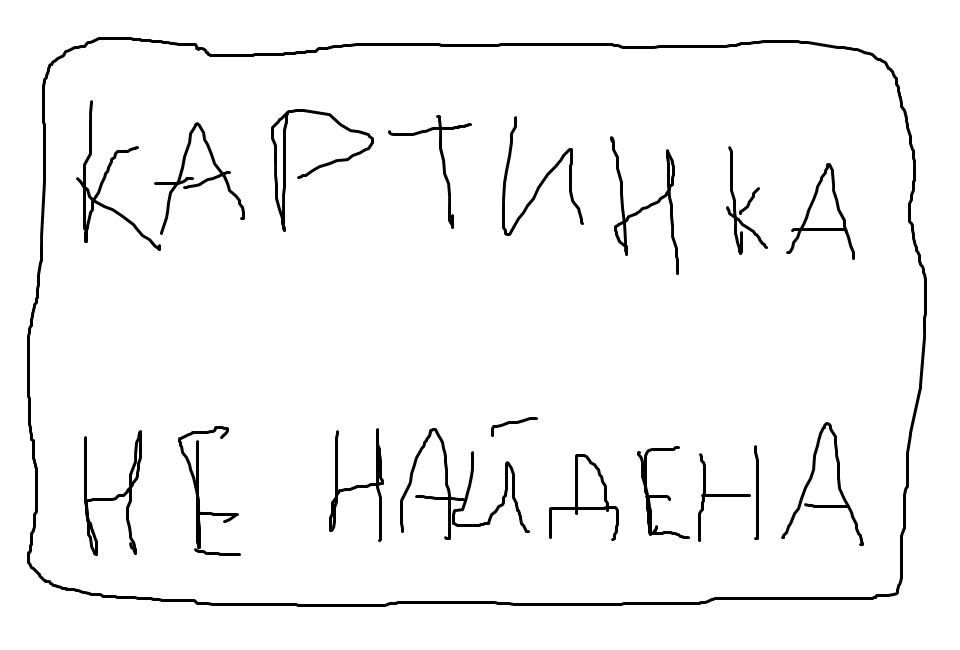 КАРТИНКА
НЕ НАЙДЕНА